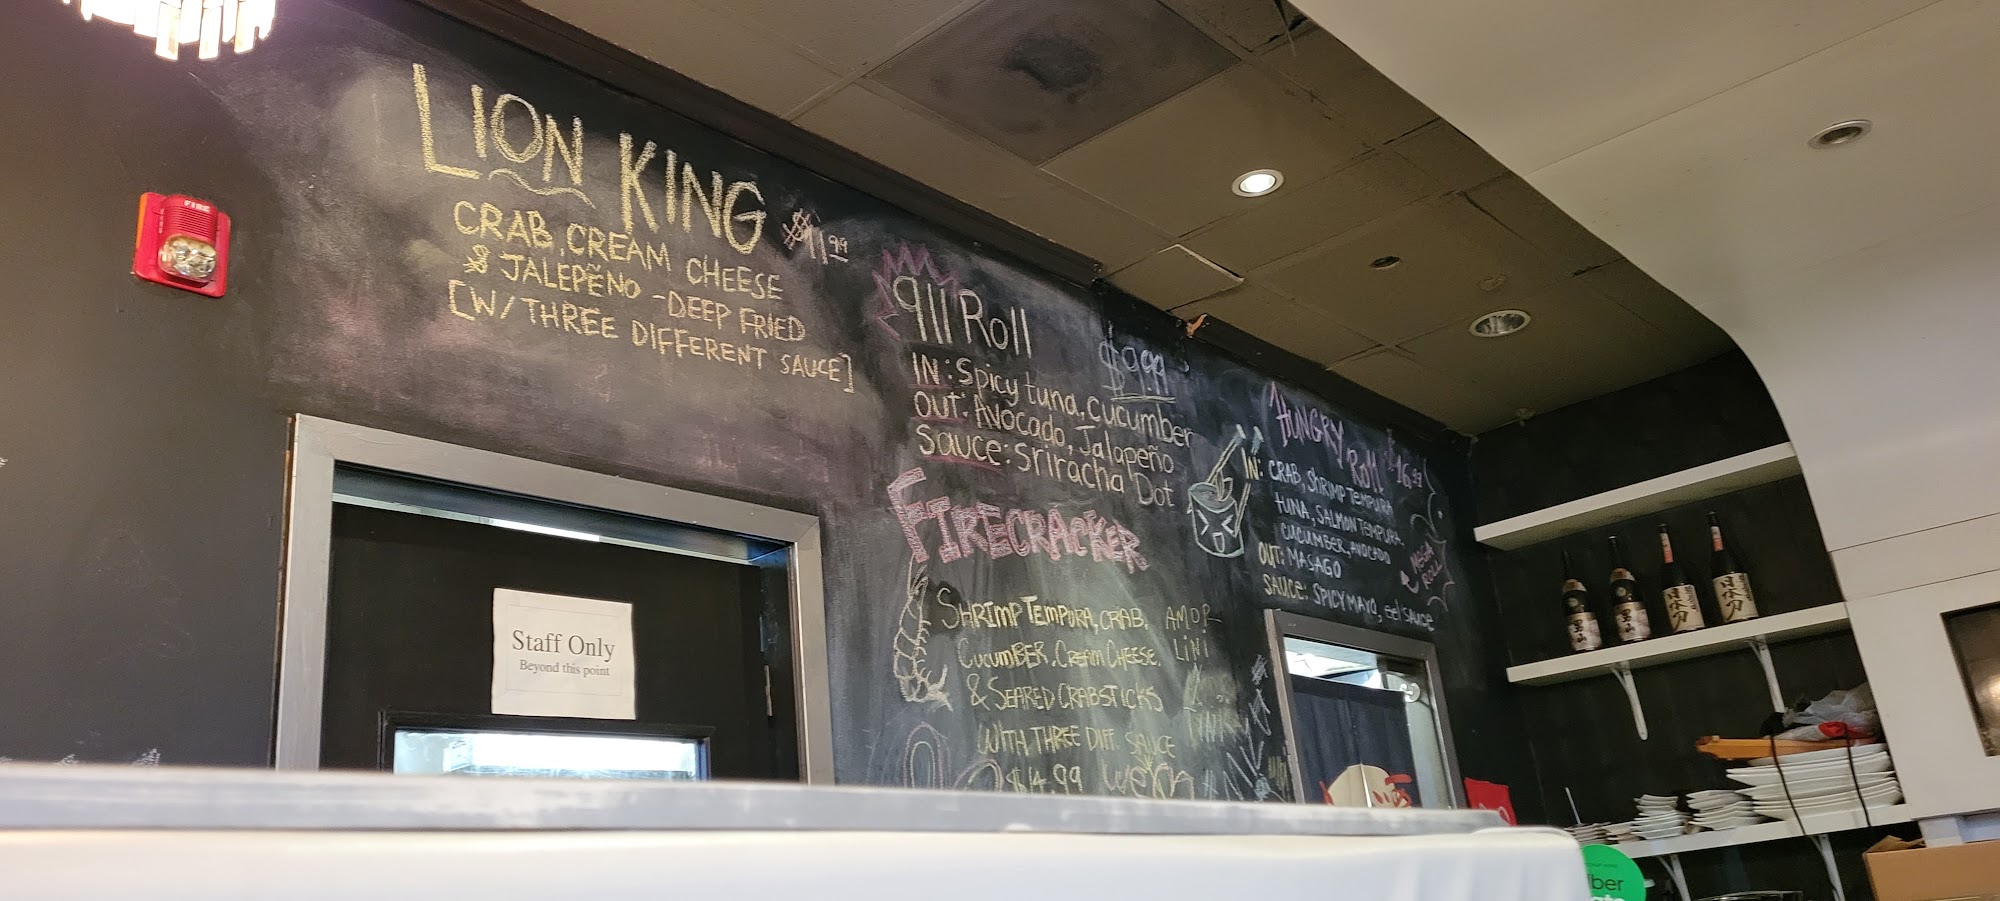 FIRE
LION KING
$11.99
CRAB, CREAM CHEESE
& JALEPEÑO - DEEP FRIED
[W/ THREE DIFFERENT SAUCE]
911 Roll
$9.99
IN: Spicy tuna, cucumber
OUT: Avocado, Jalapeño
Sauce: Sriracha Dot
FIRECRACKER
SHRIMP TEMPURA, CRAB,
CUCUMBER, CREAM CHEESE,
& SEARED CRABSTICKS
WITH THREE DIFF. SAUCE
$14.99
HUNGRY Roll $16.99
IN: CRAB, SHRIMP TEMPURA
TUNA, SALMON TEMPURA,
CUCUMBER, AVOCADO
OUT: MASAGO
SAUCE: SPICY MAYO, eel SAUCE
MEGA
ROLL
Staff Only
Beyond this point